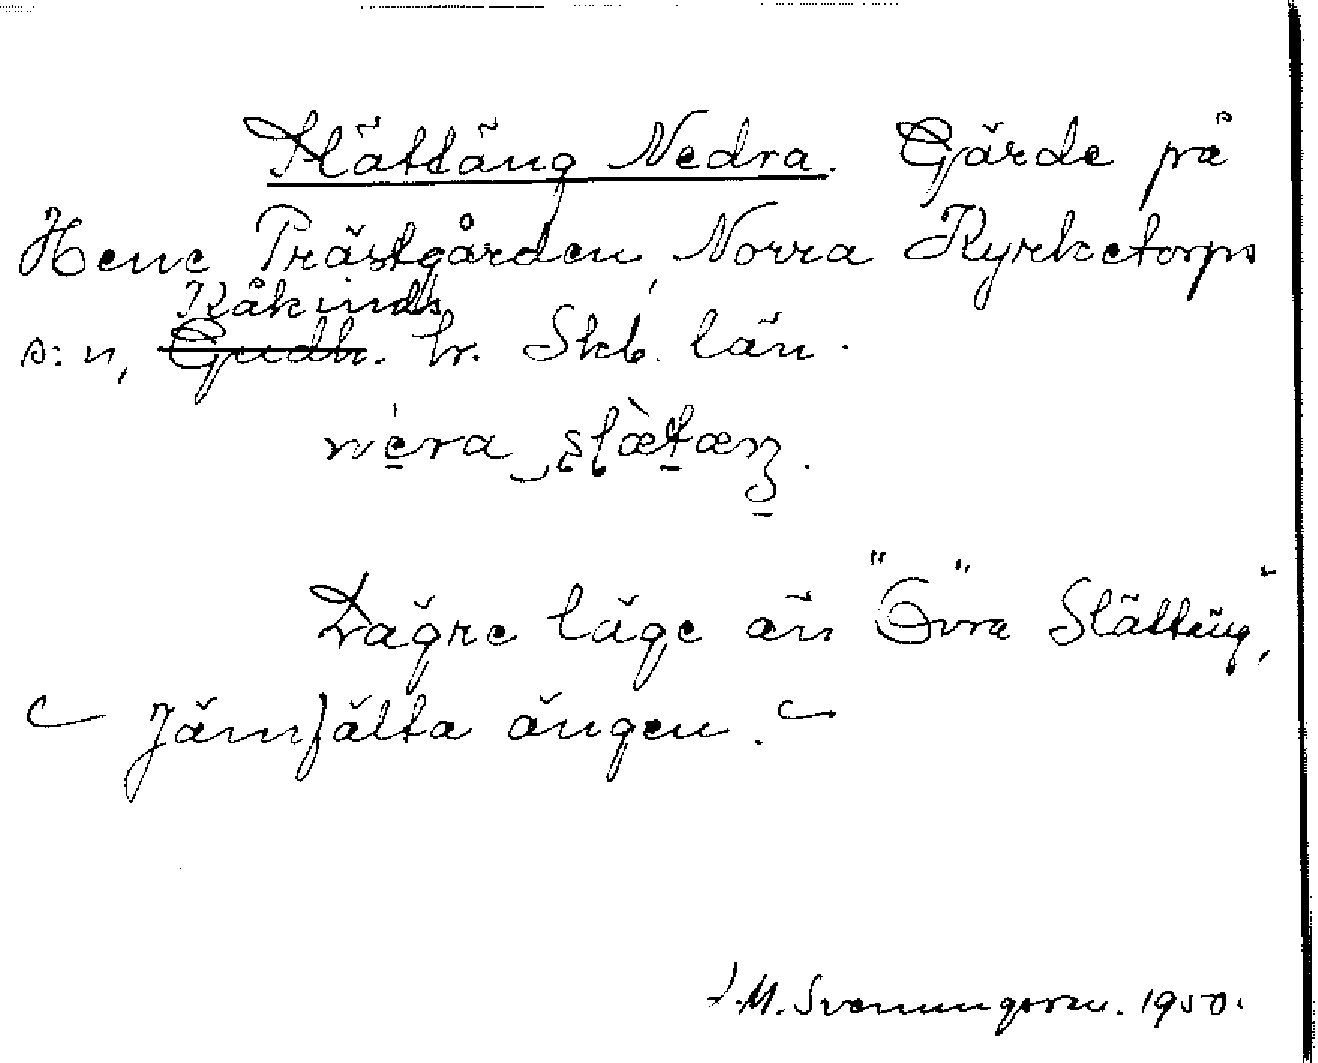 Slättäng Nedra. Gärde på
Hene Prästgården, Norra Kyrketorps
Kåkinds
s:n, Gudh. hr. Skb. län.
néra slætæŋ.
Lägre läge än "Övra Slättäng",
Jämfälta ängen.
J.M. Svenungsson. 1950.